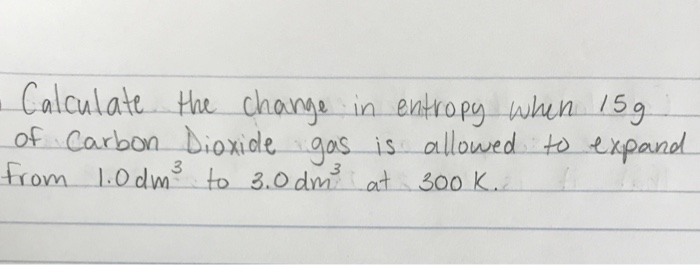 Calculate the change in entropy when 15g
of Carbon Dioxide gas is allowed to expand
from 1.0dm³ to 3.0dm³ at 300K.